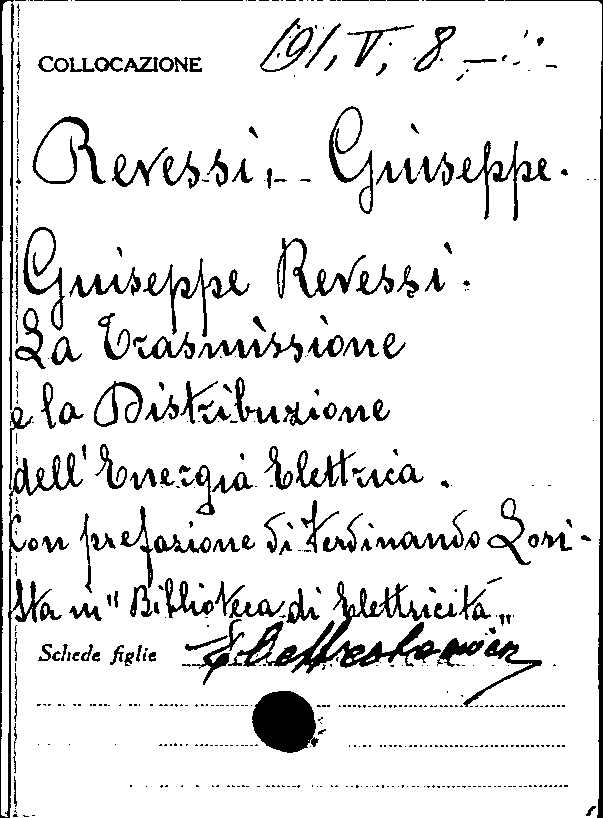 COLLOCAZIONE 191, V, 8, -
Revessi, - Giuseppe.
Giuseppe Revessi.
La Trasmissione
e la Distribuzione
dell'Energia Elettrica.
Con prefazione di Ferdinando Lori-
Sta in "Biblioteca di Elettricità"
Schede figlie